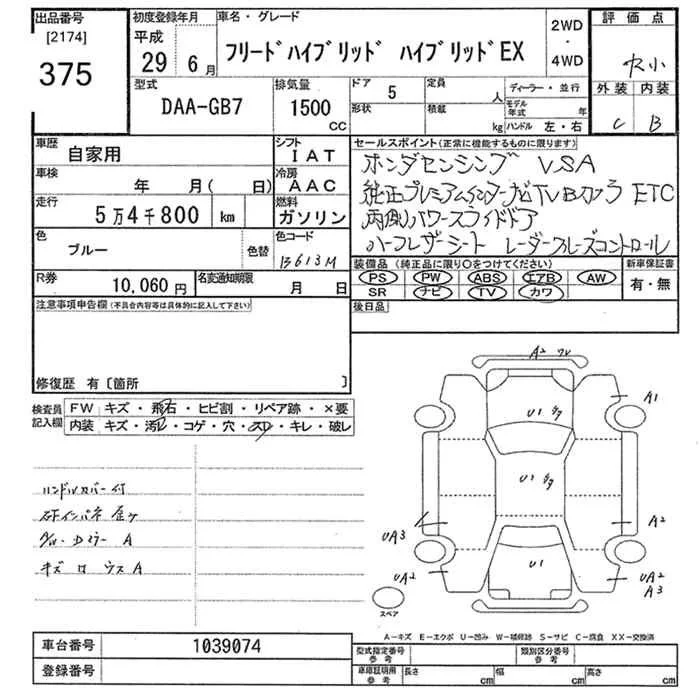 出品番号
[2174]
375
初度登録年月
平成
29 6月
車名・グレード
フリードハイブリッド ハイブリッドEX
2WD
・
4WD
評価点
外装 内装
C B
型式
DAA-GB7
排気量
1500
CC
ドア 5
形状
定員 人
積載 kg
ディーラー・並行
モデル年式 年
ハンドル 左・右
車歴
自家用
シフト
IAT
車検
年 月( 日)
冷房
AAC
走行
5万4千800 km
燃料
ガソリン
色
ブルー
色替
色コード
B613M
R券
10,060円
名変通知期限
月 日
セールスポイント(正常に機能するものに限ります)
ホンダセンシング VSA
純正プレミアムインターナビTV Bカメラ ETC
両側パワースライドドア
ハーフレザーシート レーダークルーズコントロール
装備品(純正品に限り○をつけてください)
PS PW ABS エアB AW
SR ナビ TV カワ
新車保証書
有・無
後日品
注意事項申告欄(不具合内容等は具体的に記入して下さい)
修復歴 有〔箇所 〕
検査員記入欄
FW キズ・飛石・ヒビ割・リペア跡・×要
内装 キズ・汚れ・コゲ・穴・スレ・キレ・破レ
ハンドルカバー付
キズ
A2
A1
U1
U1
U1
UA3
A2
UA2
UA2
A3
スペア
A-キズ E-エクボ U-凹み W-補修跡 S-サビ C-腐食 XX-交換済
車台番号
1039074
登録番号
型式指定番号
参考
類別区分番号
参考
車庫証明用
参考
長さ cm
幅 cm
高さ cm